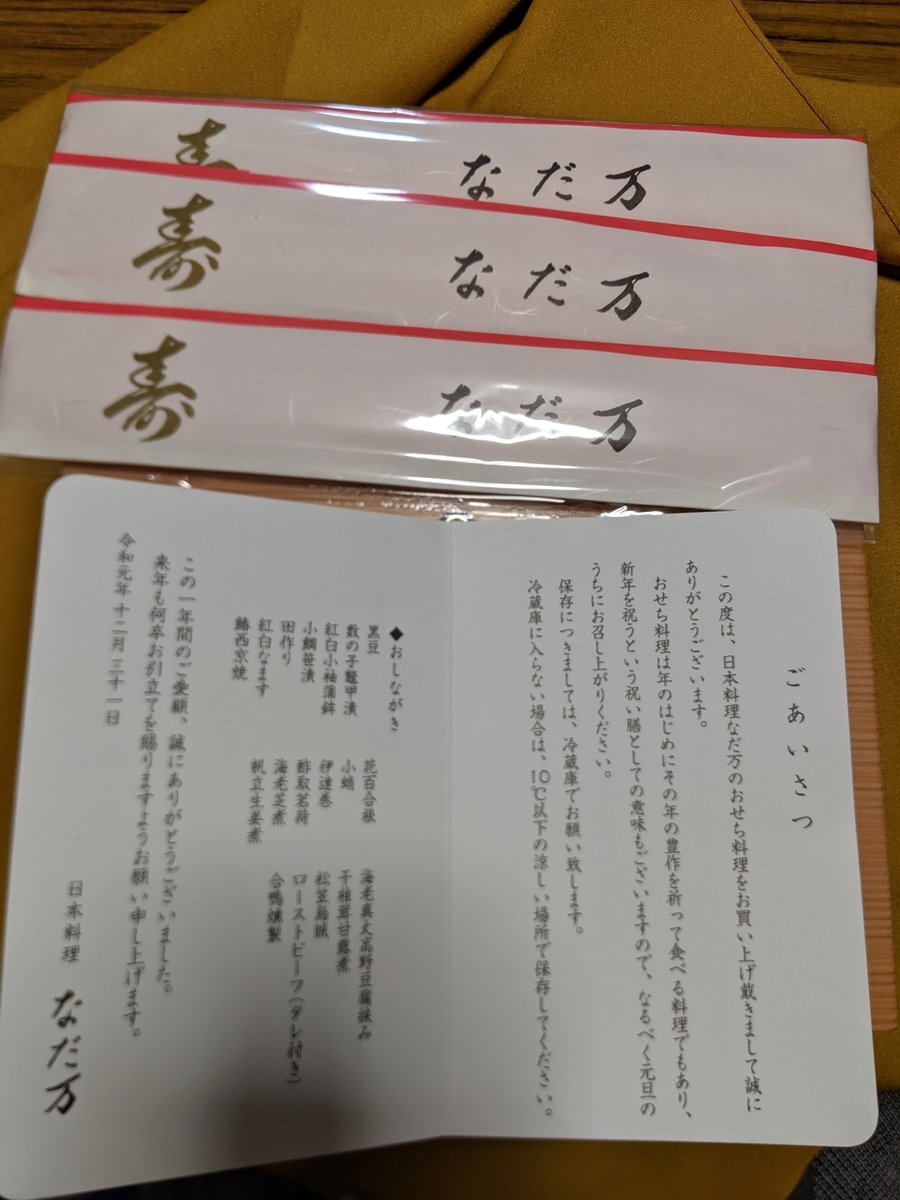 なだ万
寿
なだ万
寿
なだ万
ごあいさつ
この度は、日本料理なだ万のおせち料理をお買い上げ戴きまして誠に
ありがとうございます。
おせち料理は年のはじめにその年の豊作を祈って食べる料理でもあり、
新年を祝うという祝い膳としての意味もございますので、なるべく元旦の
うちにお召し上がりください。
保存につきましては、冷蔵庫でお願い致します。
冷蔵庫に入らない場合は、10℃以下の涼しい場所で保存してください。
◆おしながき
黒豆
数の子鼈甲漬
紅白小袖蒲鉾
小鯛笹漬
田作り
紅白なます
鰆西京焼
花百合根
小鮹
伊達巻
酢取茗荷
海老芝煮
帆立生姜煮
海老真丈高野豆腐挟み
干椎茸甘露煮
松笠烏賊
ローストビーフ(タレ付き)
合鴨燻製
この一年間のご愛顧、誠にありがとうございました。
来年も何卒お引立てを賜りますようお願い申し上げます。
令和元年十二月三十一日
日本料理 なだ万